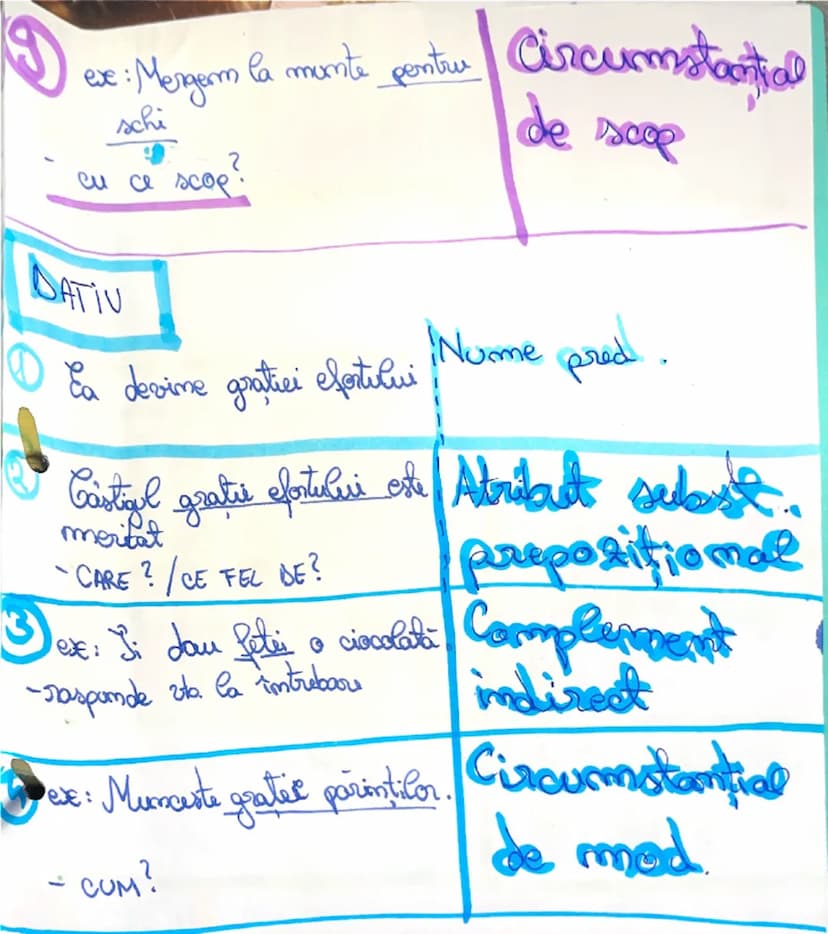 9
ex: Mergem la munte pentru
schi
- cu ce scop?
Circumstanțial
de scop
DATIV
1 Ea devine grației efortului
Nume pred.
2 Câstigul grație efortului este
meritat
- CARE? / CE FEL DE?
Atribut subst.
prepozițional
3 ex: Îi dau fetei o ciocolată
- raspunde la întrebare
Complement
indirect
ex: Munceste grație părinților.
- CUM?
Circumstanțial
de mod.